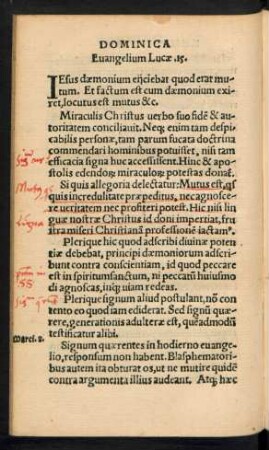 DOMINICA
Euangelium Lucæ .15.
IEsus dæmonium eijciebat quod erat mu⸗
tum. Et factum est cum dæmonium exi⸗
ret, locutus est mutus &c.
Miraculis Christus uerbo suo fidē & au⸗
toritatem conciliauit. Neq; enim tam despi⸗
cabilis personæ, tam parum fucata doctrina
commendari hominibus potuisset, nisi tam
efficacia signa huc accessissent. Hinc & apo⸗
stolis edendorꝫ miraculorꝫ potestas donať.
Si quis allegoria delectatur: Mutus est, qs
quis incredulitate præpeditus, nec agnosce
re ueritatem nec profiteri potest. Hic nisi lin
guæ nostræ Christus id doni impertiat, fru
stra miseri Christianā professionē iactamᵘ.
Plerique hic quod adscribi diuinæ poten
tiæ debebat, principi dæmoniorum adscri⸗
bunt contra conscientiam, id quod peccare
est in spiritum sanctum, ni peccatū huiusmo
di agnoscas, inq; uiam redeas.
Plerique signum aliud postulant, nō con
tento eo quod iam ediderat. Sed signū quæ
rere, generationis adulteræ est, quēadmodū
testificatur alibi.
Marci. 8.
Signum quærentes in hodierno euange⸗
lio, responsum non habent. Blasphematori⸗
bus autem ita obturat os, ut ne mutire quidē
contra argumenta illius audeant. Atq; hæc